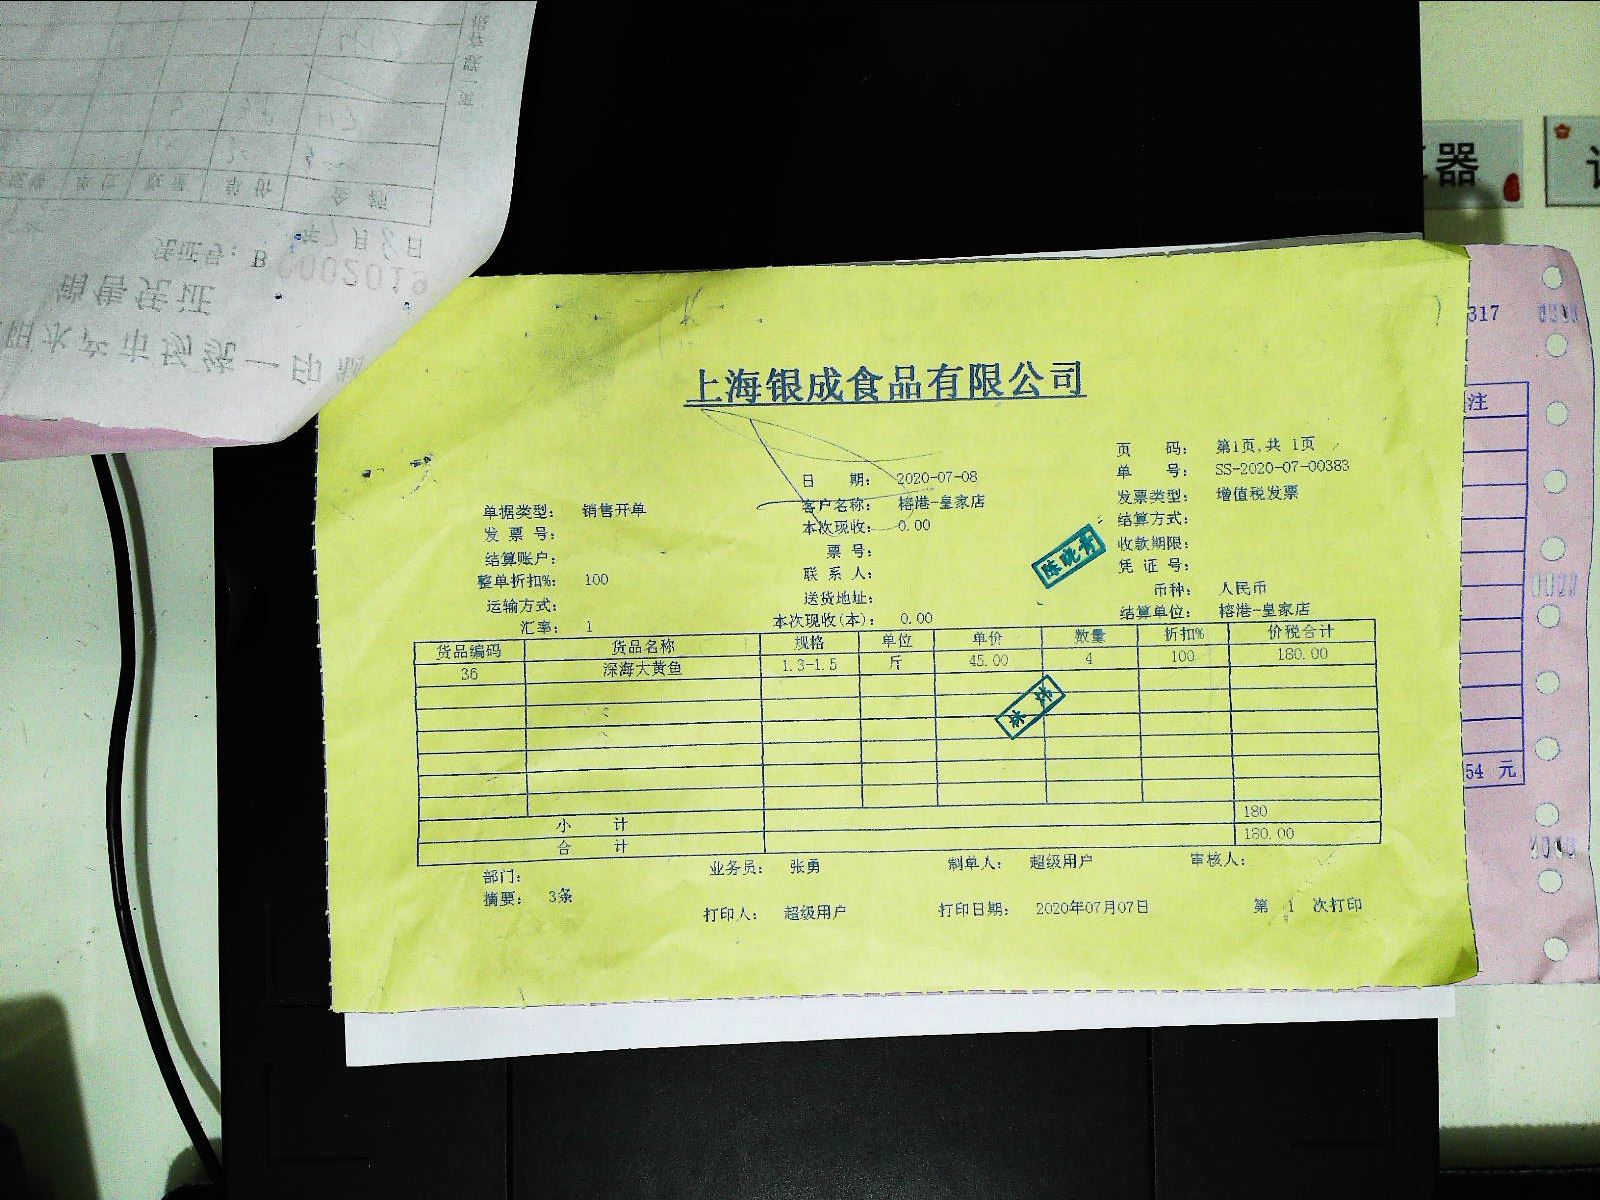 上海银成食品有限公司
页 码： 第1页,共 1页
日 期： 2020-07-08
单 号： SS-2020-07-00383
单据类型： 销售开单
客户名称： 榕港-皇家店
发票类型： 增值税发票
发 票 号：
本次现收： 0.00
结算方式：
结算账户：
票 号：
收款期限：
整单折扣%： 100
联 系 人：
凭 证 号：
运输方式：
送货地址：
币种： 人民币
汇率： 1
本次现收(本)： 0.00
结算单位： 榕港-皇家店
货品编码 货品名称 规格 单位 单价 数量 折扣% 价税合计
36 深海大黄鱼 1.3-1.5 斤 45.00 4 100 180.00
小 计 180
合 计 180.00
部门： 业务员： 张勇 制单人： 超级用户 审核人：
摘要： 3条
打印人： 超级用户 打印日期： 2020年07月07日 第 1 次打印
陈晓青
317
注
54 元
器
水产市场统一印制
销售凭证
凭证号：B 0002019
年7月8日
单位 数量 单价 金额